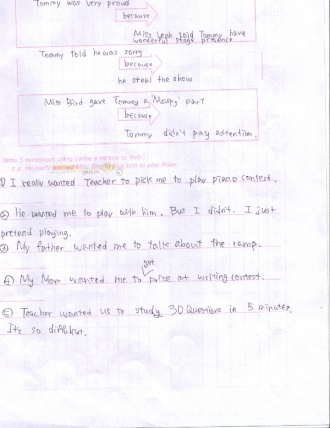 Tommy was very proud
because
Miss Leah said Tommy have
wonderful stage presence
Tommy told he was sorry
because
he steal the show
Miss Bird gave Tommy a "Mospy" part
because
Tommy didn't pay attention.
Write 5 sentences using
① I really wanted Teacher to pick me to play piano contest.
② He wanted me to play with him. But I didn't. I just
pretend playing.
③ My father wanted me to talk about the camp.
got
④ My Mom wanted me to prize at writing contest.
⑤ Teacher wanted us to study 30 Questions in 5 minutes.
It's so difficult.